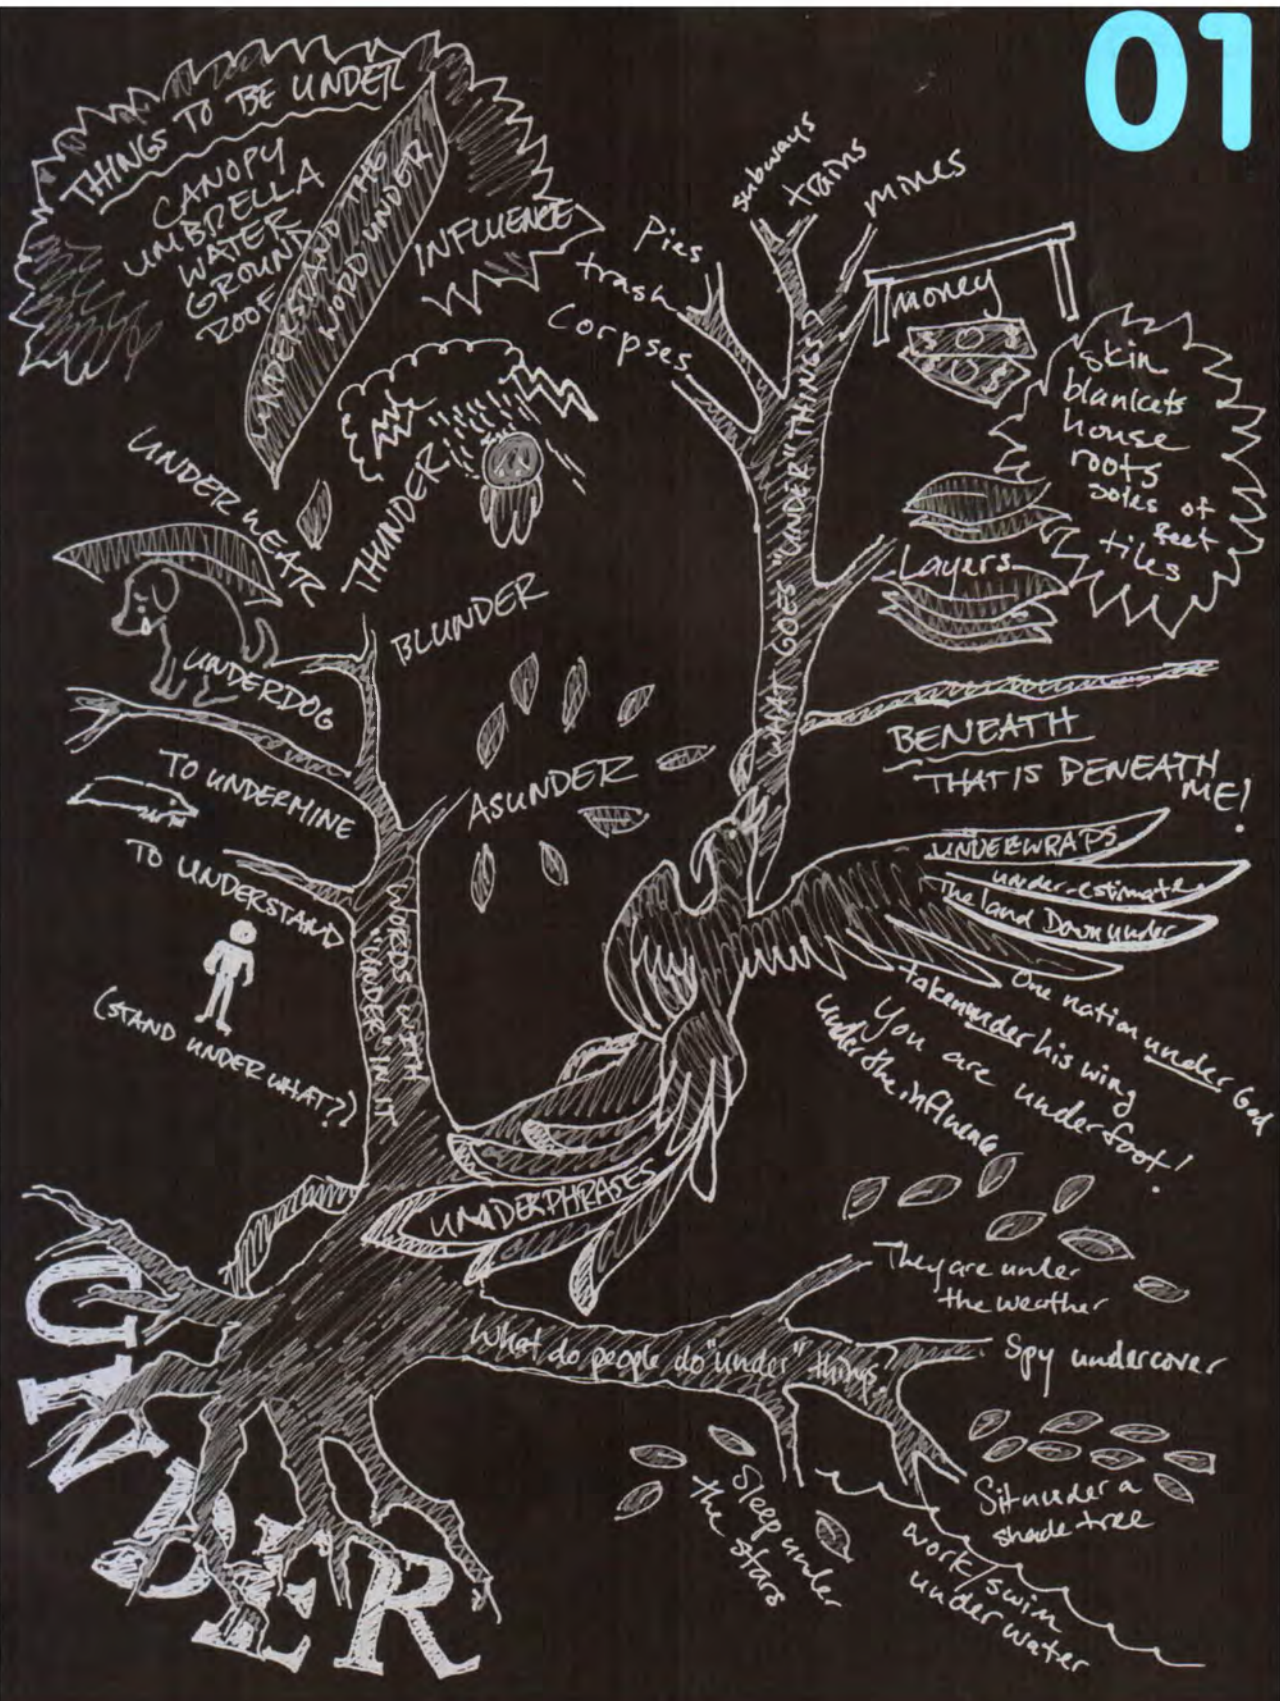 01
THINGS TO BE UNDER
CANOPY
UMBRELLA
WATER
GROUND
ROOF
UNDERSTAND THE
WORD UNDER
INFLUENCE
subways
trains
mines
Pies
trash
Corpses
money
skin
blankets
house
roots
soles of
feet
tiles
Layers
WHAT GOES "UNDER" THINGS?
UNDERWEAR
THUNDER
BLUNDER
UNDERDOG
TO UNDERMINE
TO UNDERSTAND
(STAND UNDER WHAT?)
WORDS WITH
"UNDER" IN IT
ASUNDER
BENEATH
THAT IS BENEATH
ME!
UNDERWRAPS
under-estimate
The land Down under
One nation under God
taken under his wing
You are under foot!
under the influence
UNDERPHRASES
What do people do "under" things?
They are under
the weather
Spy undercover
Sit under a
shade tree
work/swim
under water
Sleep under
the stars
UNDER